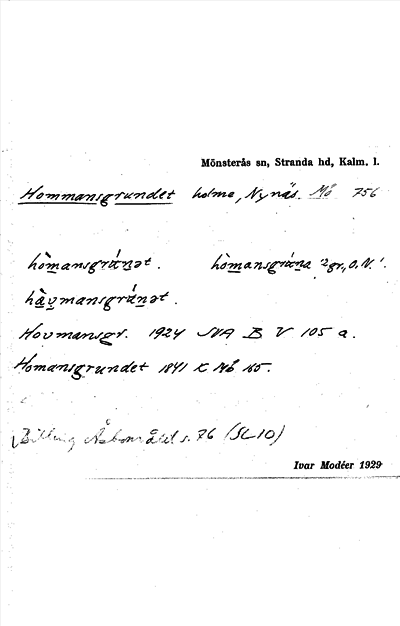 Mönsterås sn, Stranda hd, Kalm. l.
Hommansgrundet holme, Nynäs. Mö 756
hòmansgrúnət. hòmansgrúna 2 gr., O.N.'.
hàvmansgrúnət.
Hovmansgr. 1924 SNA B V 105 a.
Homansgrundet 1841 K Mö 165.
Billing Åsbområdet s. 76 (SL10)
Ivar Modéer 1929